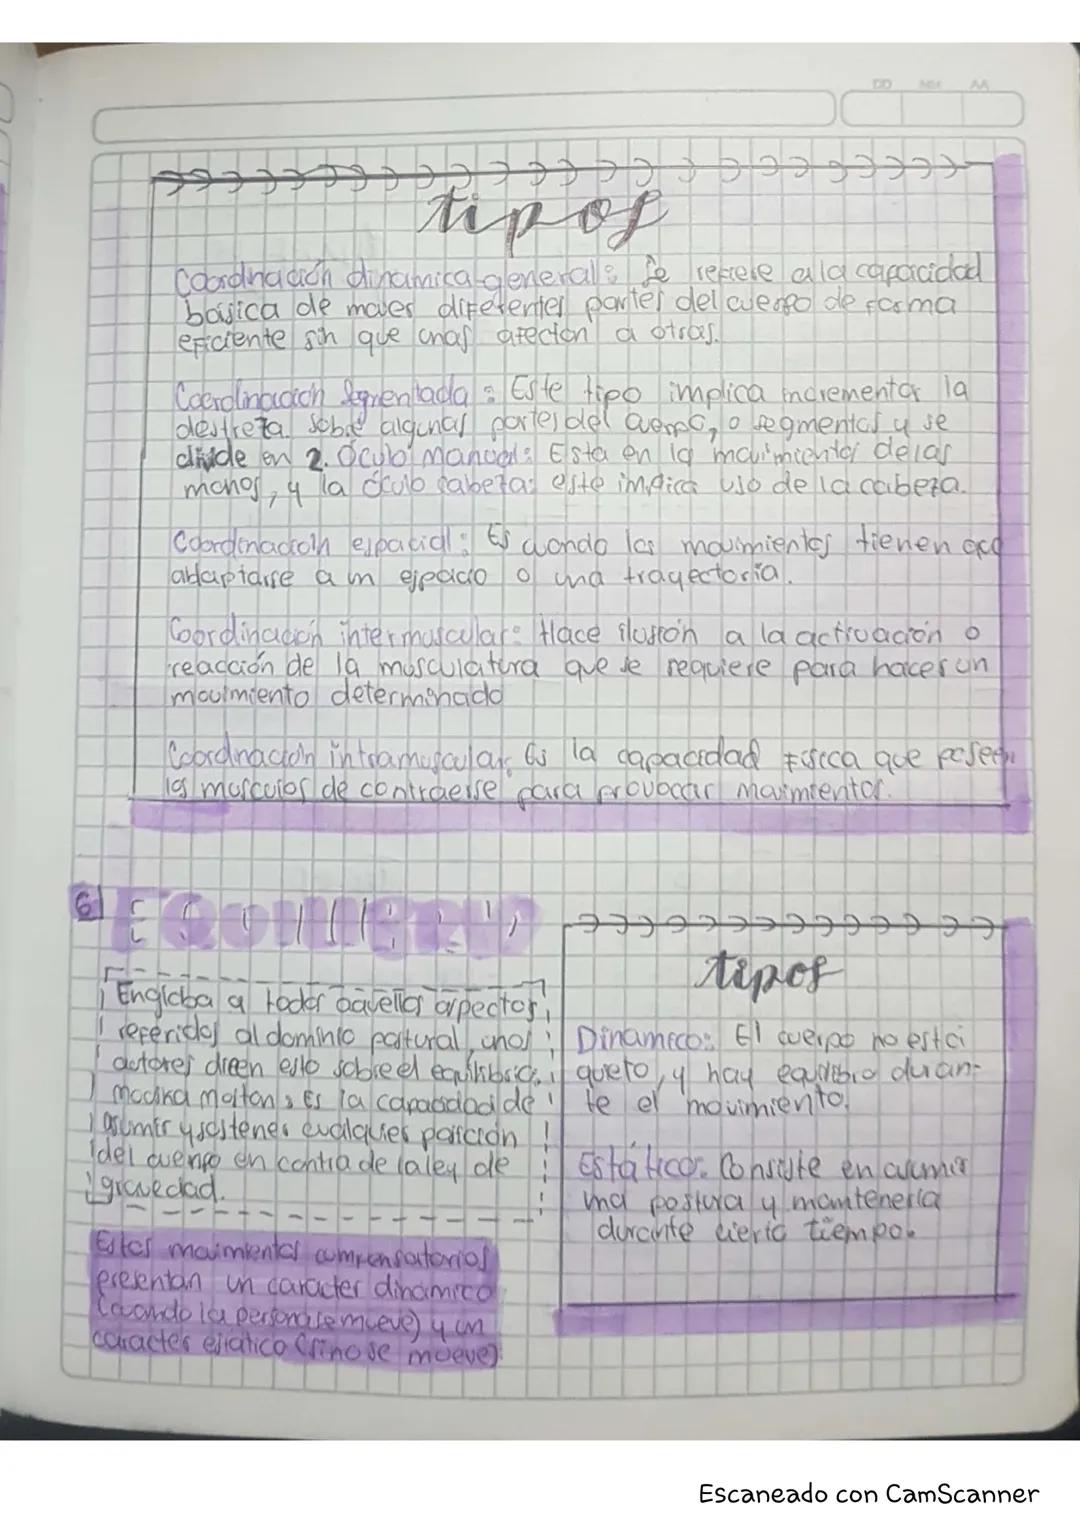 DD MM AA
tipos
Coordinación dinamica general: Se refiere a la capacidad
basica de mover diferentes partes del cuerpo de forma
eficiente sin que unas afecten a otras.
Coordinación Segmentada: Este tipo implica incrementar la
destreza sobre algunas partes del cuerpo, o segmentos y se
divide en 2. Óculo manual: Esta en la movimientos de las
manos, y la óculo cabeza: este implica uso de la cabeza.
Coordinación espacial: Es cuando los movimientos tienen que
adaptarse a un espacio o una trayectoria.
Coordinación intermuscular: Hace ilusión a la activación o
reacción de la musculatura que se requiere para hacer un
movimiento determinado
Coordinación intramuscular: Es la capacidad física que poseen
los musculos de contraerse para provocar movimientos.
6)
tipos
Engloba a todos aquellos aspectos
referidos al dominio postural, unos
autores dicen esto sobre el equilibrio.
moston: Es la capacidad de
asumir y sostener cualquier posición
del cuerpo en contra de la ley de
gravedad.
Estos movimientos compensatorios
presentan un caracter dinámico
(cuando la persona se mueve) y un
caracter estatico (si no se mueve).
Dinamico: El cuerpo no está
quieto, y hay equilibrio duran-
te el movimiento.
Estático: Consiste en asumir
una postura y mantenerla
durante cierto tiempo.
Escaneado con CamScanner